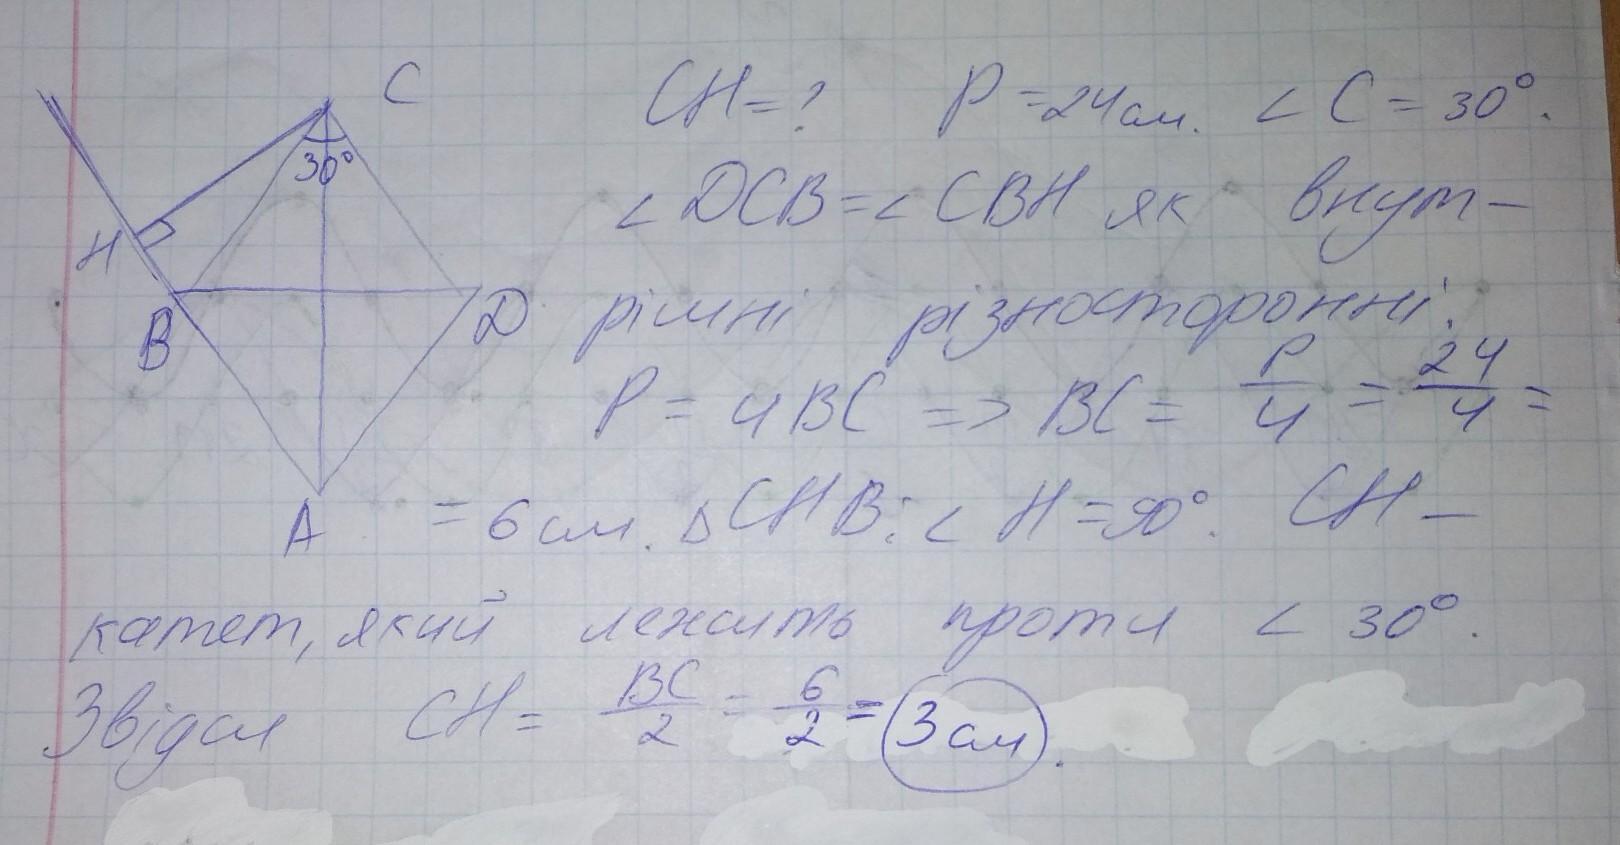 C
CH=? P=24см. <C=30°.
30°
<DCB=<CBH як внут-
H
B
D
рішні різносторонні.
P = 4BC => BC = P/4 = 24/4 =
A
= 6см. ∆CHB: <H=90°. CH-
катет, який лежить проти < 30°.
Звідси CH = BC/2 = 6/2 = 3см.